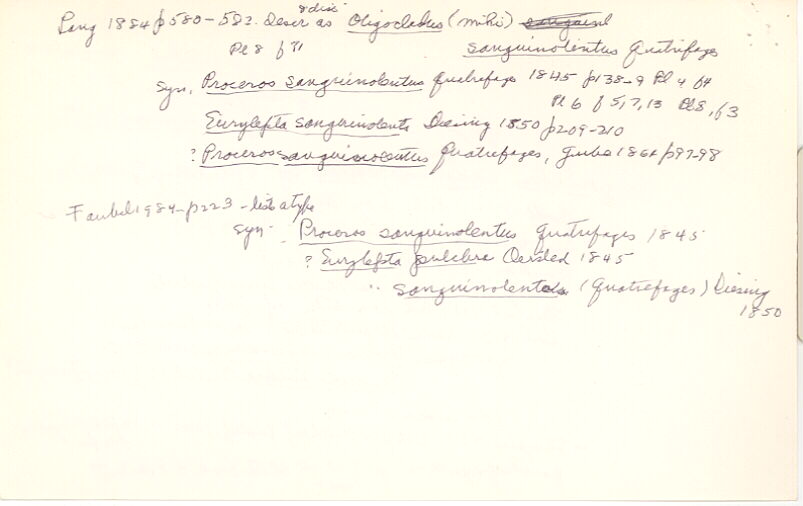 Lang 1884 p580-582. Descr & disc as Oligocladus (mihi)
Pl 8 f 71 sanguinolentus Quatrefages
Syn. Proceros sanguinolentus Quatrefages 1845 p138-9 Pl 4 f4
Pl 6 f 5, 7, 13 Pl 8, f 3
Eurylepta sanguinolenta Diesing 1850 p209-210
? Proceros sanguinolentus Quatrefages, Grube 1864 p97-98
Faubel 1984 - p223 - list a type
Syn - Proceros sanguinolentus Quatrefages 1845
? Eurylepta pulchra Oersted 1845
" sanguinolenta (Quatrefages) Diesing
1850